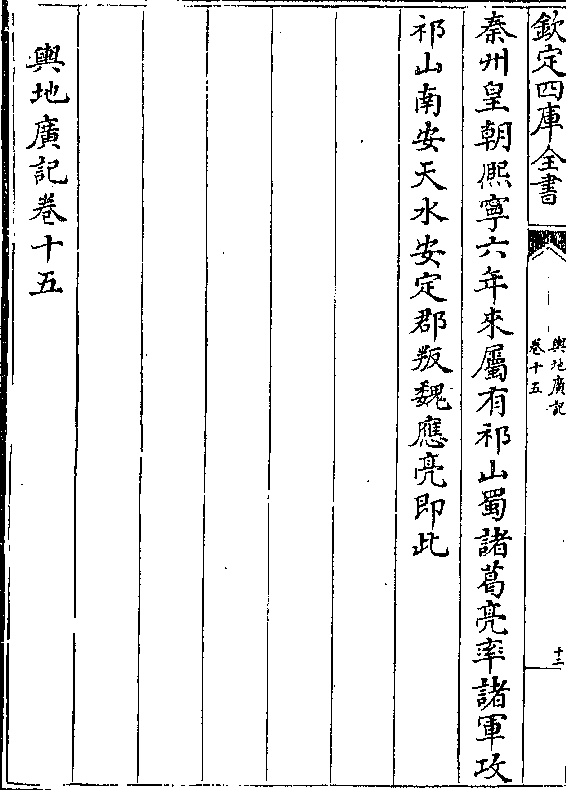 欽定四庫全書
輿地廣記
卷十五
十三
秦州皇朝熈寧六年來屬有祁山蜀諸葛亮率諸軍攻
祁山南安天水安定郡叛魏應亮即此
輿地廣記卷十五